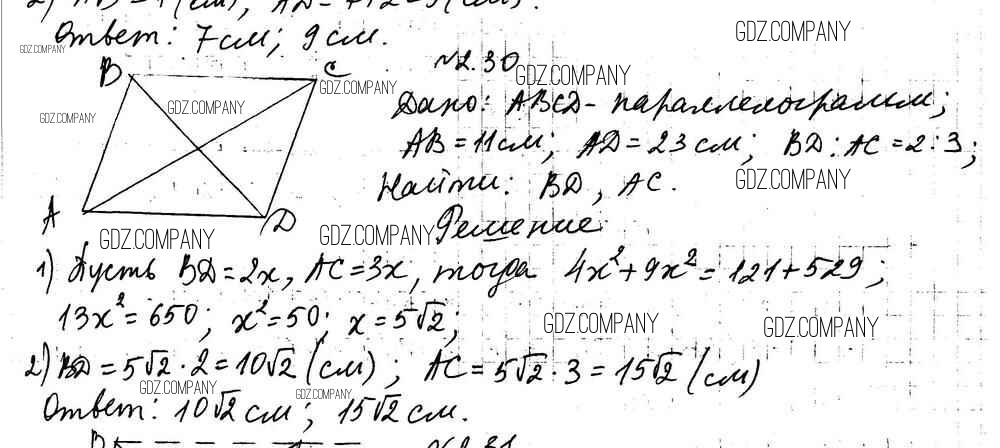 Ответ: 7 см; 9 см.
GDZ.COMPANY
GDZ.COMPANY
№2.30
B
C
GDZ.COMPANY
GDZ.COMPANY
GDZ.COMPANY
GDZ.COMPANY
Дано: ABCD - параллелограмм;
AB = 11 см; AD = 23 см; BD : AC = 2 : 3;
Найти: BD, AC.
GDZ.COMPANY
A
D
GDZ.COMPANY
GDZ.COMPANY
Решение
1) Пусть BD = 2x, AC = 3x, тогда 4x² + 9x² = 121 + 529;
13x² = 650; x² = 50; x = 5√2;
GDZ.COMPANY
GDZ.COMPANY
2) BD = 5√2 · 2 = 10√2 (см); AC = 5√2 · 3 = 15√2 (см)
GDZ.COMPANY
GDZ.COMPANY
Ответ: 10√2 см; 15√2 см.
B